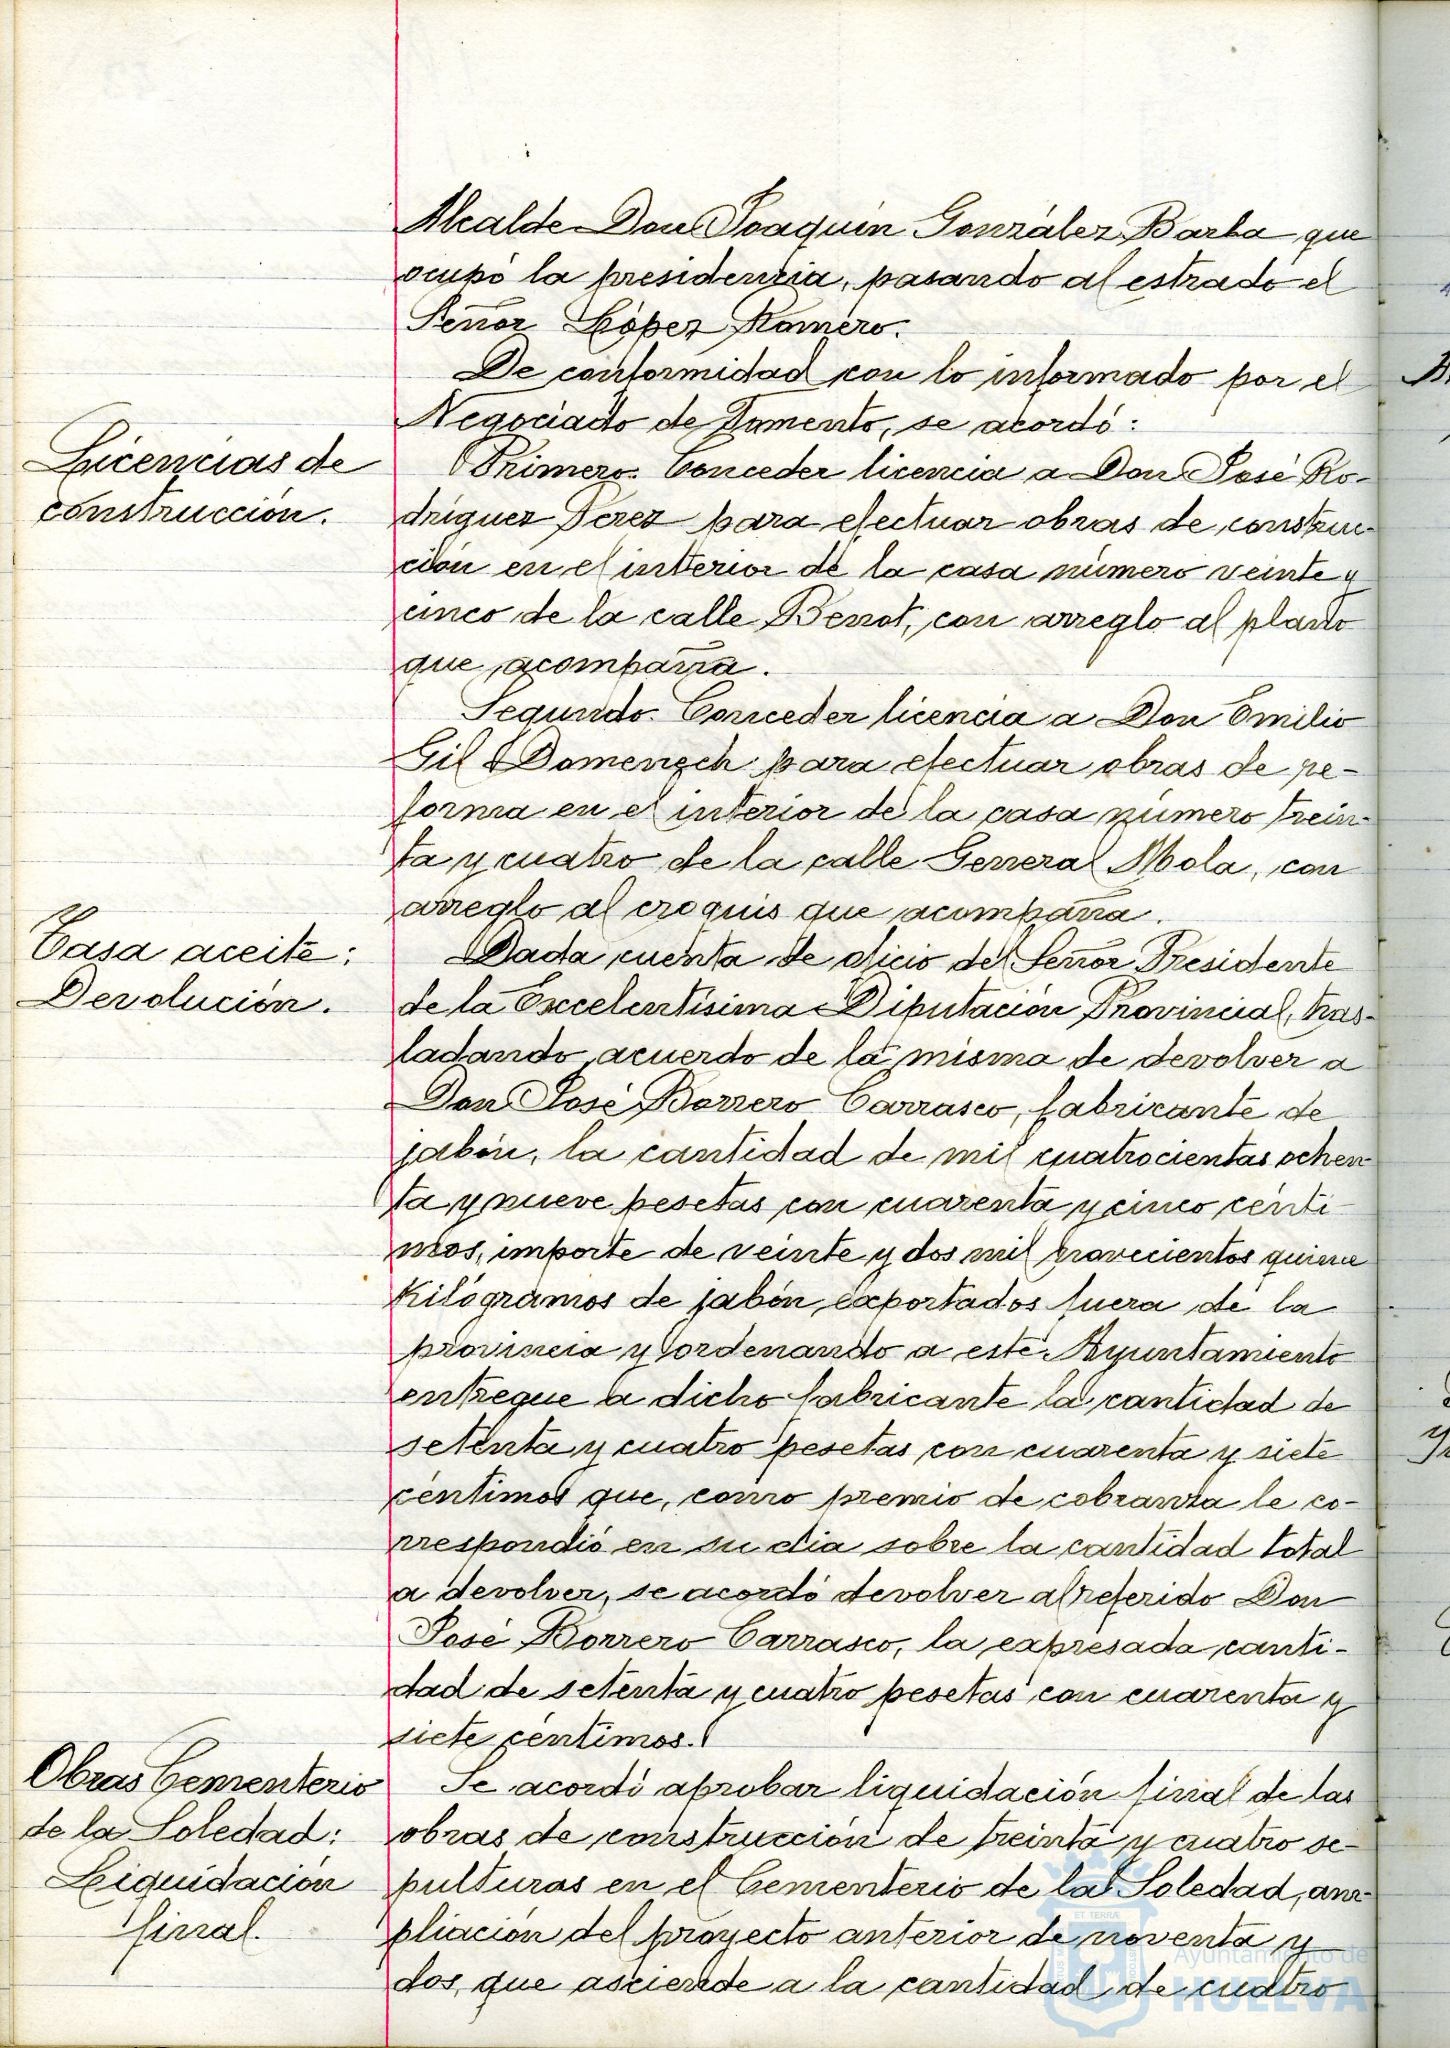 Alcalde Don Joaquín González Barba que
ocupó la presidencia, pasando al estrado el
Señor López Romero.
De conformidad con lo informado por el
Negociado de Fomento, se acordó:
Licencias de
construcción.
Primero. Conceder licencia a Don José Ro-
dríguez Pérez para efectuar obras de construc-
ción en el interior de la casa número veinte y
cinco de la calle Benot, con arreglo al plano
que acompaña.
Segundo. Conceder licencia a Don Emilio
Gil Domenech para efectuar obras de re-
forma en el interior de la casa número trein-
ta y cuatro de la calle General Mola, con
arreglo al croquis que acompaña.
Tasa aceite:
Devolución.
Dada cuenta de oficio del Señor Presidente
de la Excelentísima Diputación Provincial, tras-
ladando acuerdo de la misma de devolver a
Don José Borrero Carrasco, fabricante de
jabón, la cantidad de mil cuatrocientas ochen-
ta y nueve pesetas con cuarenta y cinco cénti-
mos, importe de veinte y dos mil novecientos quince
kilógramos de jabón exportados fuera de la
provincia y ordenando a este Ayuntamiento
entregue a dicho fabricante la cantidad de
setenta y cuatro pesetas con cuarenta y siete
céntimos que, como premio de cobranza le co-
rrespondió en su dia sobre la cantidad total
a devolver, se acordó devolver al referido Don
José Borrero Carrasco, la expresada canti-
dad de setenta y cuatro pesetas con cuarenta y
siete céntimos.
Obras Cementerio
de la Soledad:
Liquidación
final.
Se acordó aprobar liquidación final de las
obras de construcción de treinta y cuatro se-
pulturas en el Cementerio de la Soledad, am-
pliación del proyecto anterior de noventa y
dos, que asciende a la cantidad de cuatro
Ayuntamiento de
HUELVA